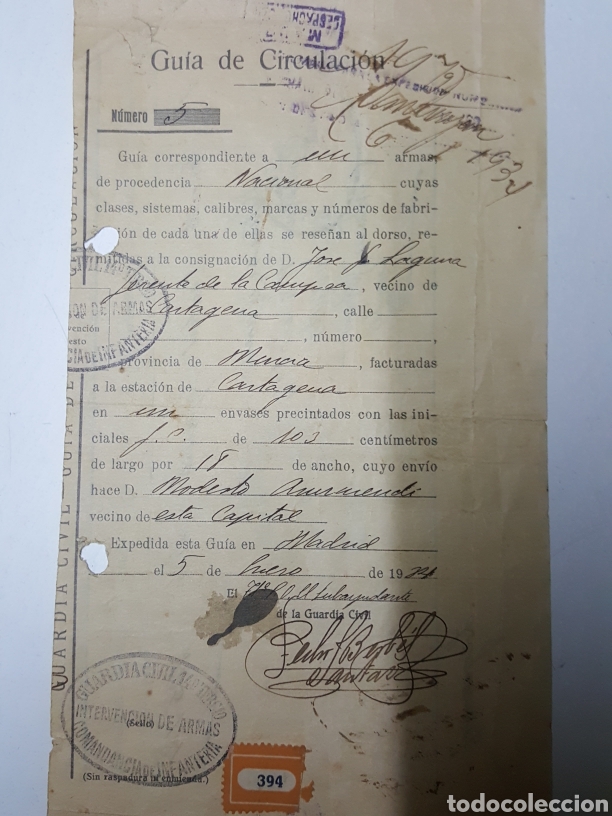 DESPACH
Guía de Circulación
EXPEDICIÓN NUM
1934
Número 5
Guía correspondiente a un armas
de procedencia Nacional cuyas
clases, sistemas, calibres, marcas y números de fabri-
ción de cada una de ellas se reseñan al dorso, re-
mitidas a la consignación de D. Jose L. Laguna
Gerente de la Campsa, vecino de
Cartagena, calle
, número ,
provincia de Murcia, facturadas
a la estación de Cartagena
en un envases precintados con las ini-
ciales J. C. de 103 centímetros
de largo por 18 de ancho, cuyo envío
hace D. Modesto
vecino de esta Capital
Expedida esta Guía en Madrid
el 5 de Enero de 1934
El Subayudante
de la Guardia Civil
Pedro
GUARDIA CIVIL — GUIA DE CIRCULACIÓN
CIVIL
ION DE ARMAS
CIA DE INFANTERIA
GUARDIA CIVIL
INTERVENCION DE ARMAS
COMANDANCIA DE INFANTERIA
(Sello)
(Sin raspadura ni enmienda.)
394
todocoleccion